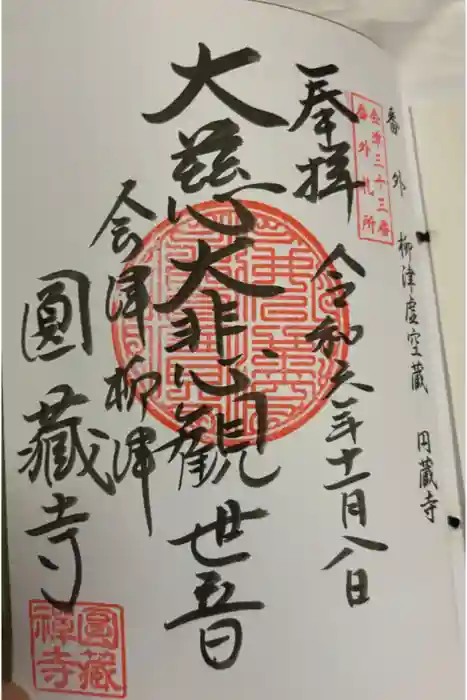 番外 柳津虚空蔵 円蔵寺
会津三十三番
番外札所
奉拝 令和六年十一月八日
大慈大悲観世音
会津柳津
圓藏寺
圓藏
禅寺